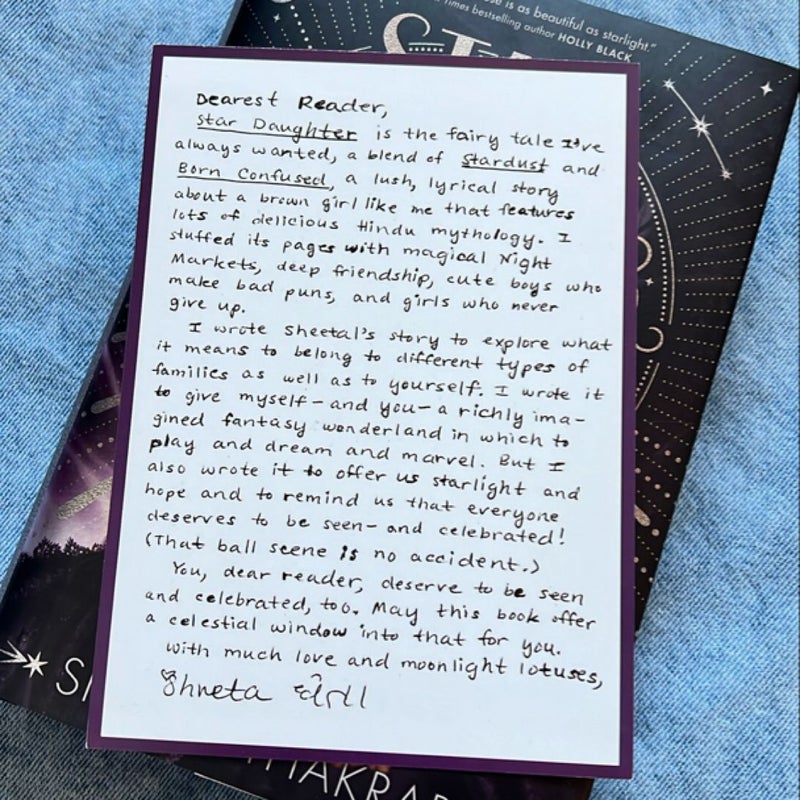 is as beautiful as starlight."
Times bestselling author HOLLY BLACK
Dearest Reader,
Star Daughter is the fairy tale I've
always wanted, a blend of Stardust and
Born Confused, a lush, lyrical story
about a brown girl like me that features
lots of delicious Hindu mythology. I
stuffed its pages with magical Night
Markets, deep friendship, cute boys who
make bad puns, and girls who never
give up.
I wrote Sheetal's story to explore what
it means to belong to different types of
families as well as to yourself. I wrote it
to give myself-and you-a richly ima-
gined fantasy wonderland in which to
play and dream and marvel. But I
also wrote it to offer us starlight and
hope and to remind us that everyone
deserves to be seen-and celebrated!
(That ball scene is no accident.)
You, dear reader, deserve to be seen
and celebrated, too. May this book offer
a celestial window into that for you.
With much love and moonlight lotuses,
Shveta